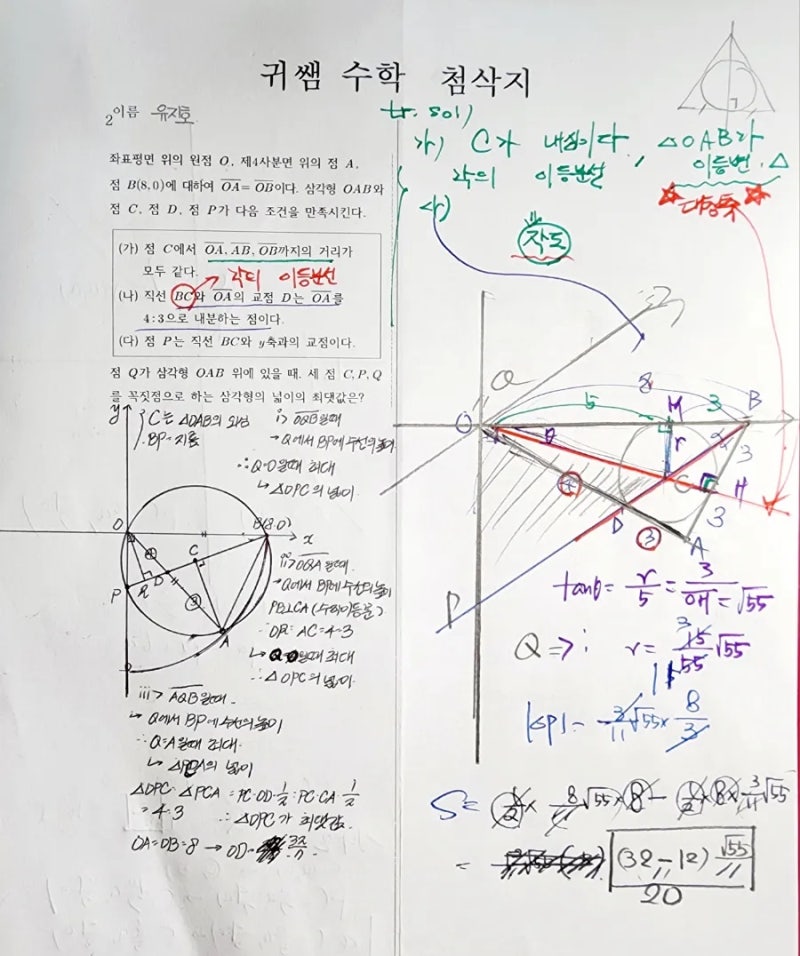 귀쌤 수학 첨삭지
2 이름 유지호
좌표평면 위의 원점 O, 제4사분면 위의 점 A,
점 B(8, 0)에 대하여 OA = OB이다. 삼각형 OAB와
점 C, 점 D, 점 P가 다음 조건을 만족시킨다.
(가) 점 C에서 OA, AB, OB까지의 거리가
모두 같다.
각의 이등분선
(나) 직선 BC와 OA의 교점 D는 OA를
4:3으로 내분하는 점이다.
(다) 점 P는 직선 BC와 y축과의 교점이다.
점 Q가 삼각형 OAB 위에 있을 때, 세 점 C, P, Q
를 꼭짓점으로 하는 삼각형의 넓이의 최댓값은?
C는 △OAB의
BP=지름
i> OQB 일때
→ Q에서 BP에 수선의
∴ Q=O일때 최대
↳ △OPC의 넓이.
y
O
B(8.0)
x
C
P
R
D
④
③
A
ii> OQA 일때.
Q에서 BP에 수선의
↳ Q=O일때 최대
∴ △OPC의 넓이.
iii> AQB일때.
↳ Q에서 BP에 수선의
∴ Q=A일때 최대.
↳ △PCA의 넓이
= 4:3 ∴ △OPC가 최댓값.
OA=OB=8 → OD = 32/7
tr. sol)
가) C가 내심이다, △OAB가
각의 이등분선
이등변 △
★대칭축★
나)
작도
O
Q
8
5
M
3
B
θ
r
α
3
C
r
H
④
D
3
③
A
P
tanθ = r/5 = 3/OH = √55
Q ⇒ ; r = 15/55 √55
3
11
|OP| = 3/11 √55 × 8/3
S = 1/2 × 8/11 √55 × 8 − 1/2 × 8 × 3/11 √55
= (32 − 12) √55/11
20